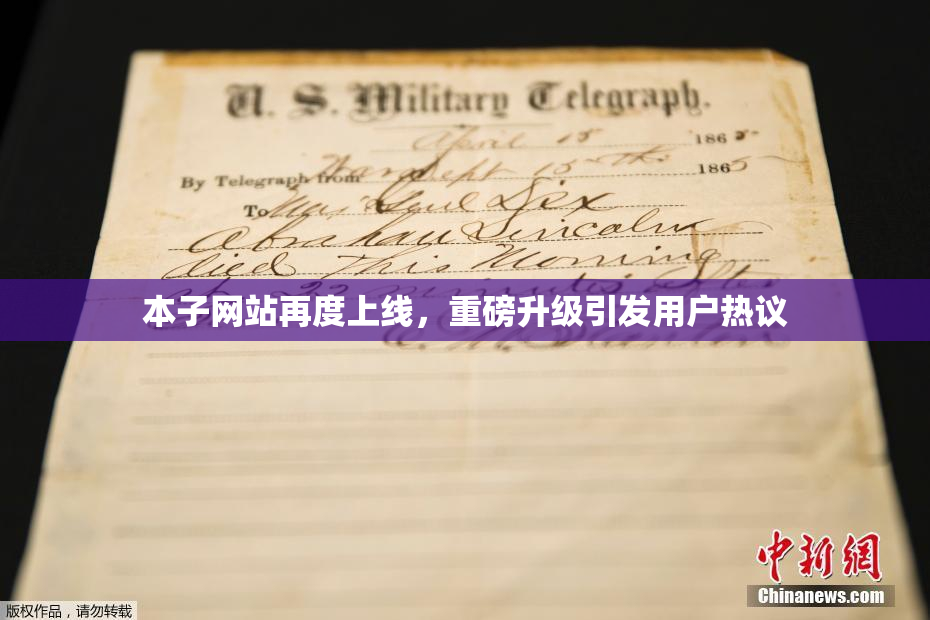 U. S. Military Telegraph.
April 15 1865
By Telegraph from War Dept 15th 1865
To Maj Genl Dix
Abraham Lincoln
died This Morning
at 22 minutes after
本子网站再度上线，重磅升级引发用户热议
E. M. Stanton
中新网
Chinanews.com
版权作品，请勿转载